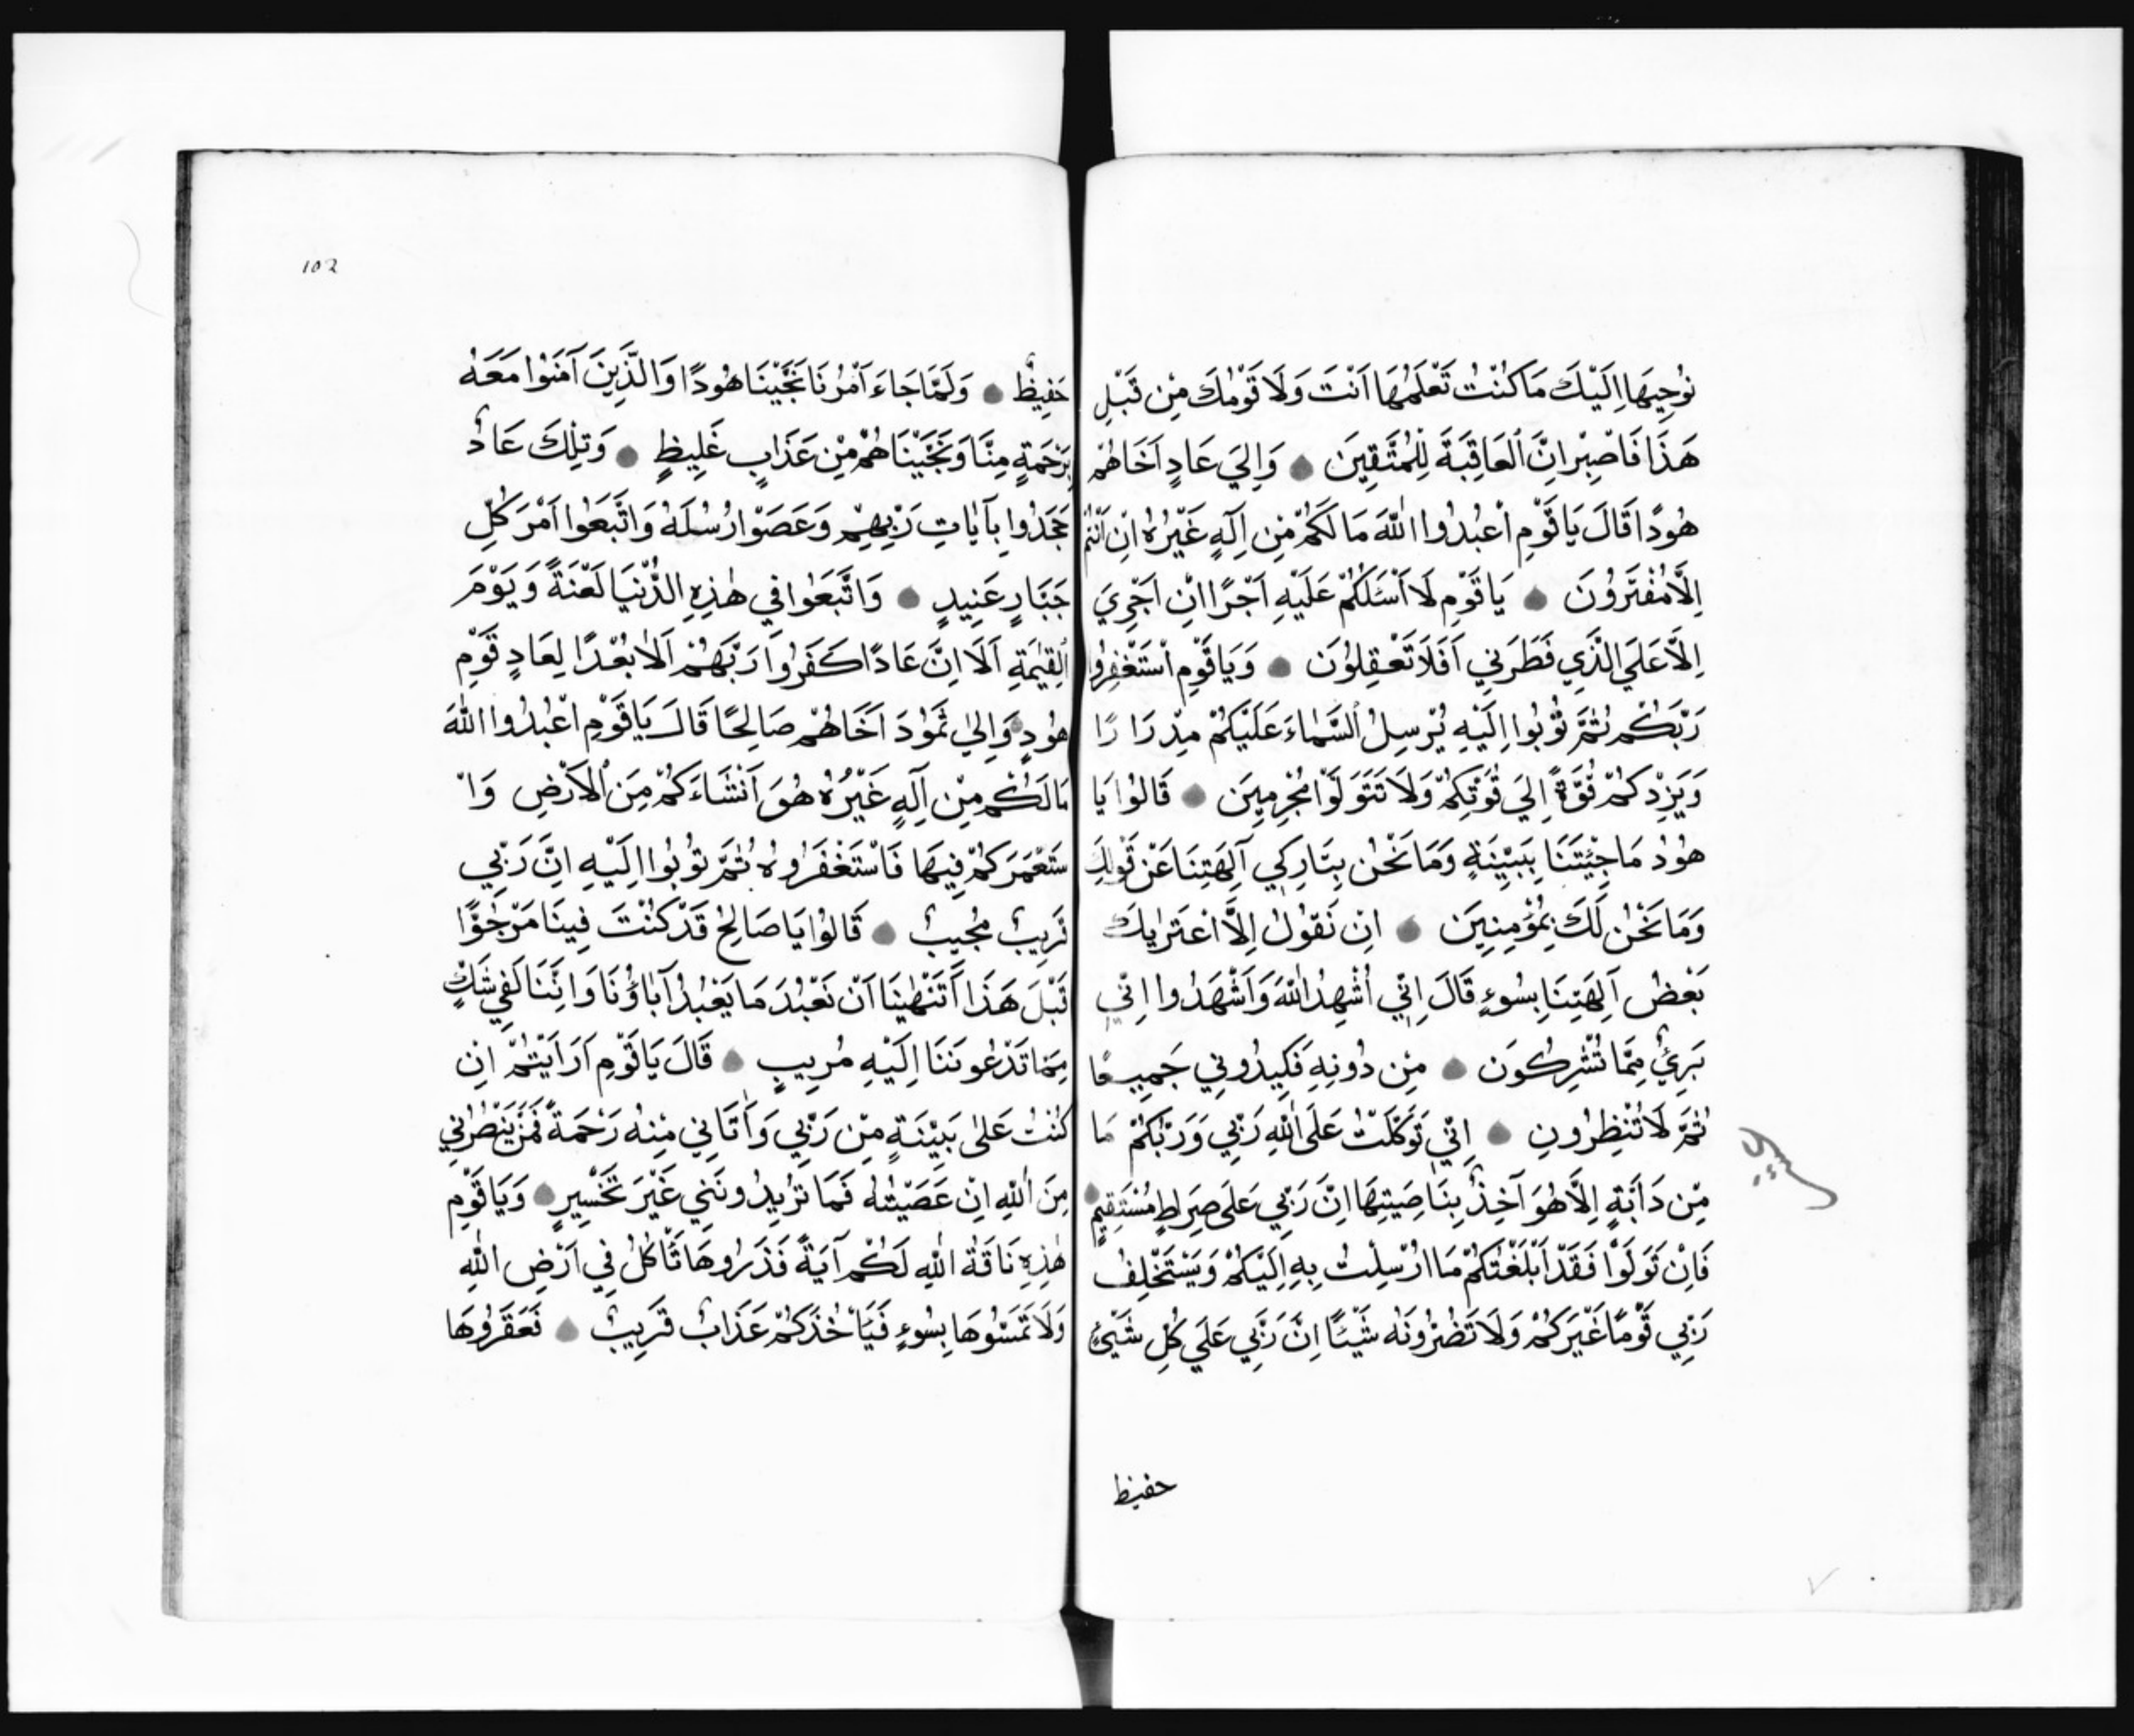 نُوحِيهَا اِلَيْكَ مَا كُنْتُ تَعْلَمُهَا اَنْتَ وَلَا قَوْمُكَ مِنْ قَبْلِ
هَذَا فَاصْبِرْ اِنَّ الْعَاقِبَةَ لِلْمُتَّقِينَ ۝ وَاِلَي عَادٍ اَخَاهُمْ
هُودًا قَالَ يَا قَوْمِ اعْبُدُوا اللّٰهَ مَا لَكُمْ مِنْ اِلَهٍ غَيْرُهُ اِنْ اَنْتُمْ
اِلَّا مُفْتَرُونَ ۝ يَا قَوْمِ لَا اَسْئَلُكُمْ عَلَيْهِ اَجْرًا اِنْ اَجْرِيَ
اِلَّا عَلَي الَّذِي فَطَرَنِي اَفَلَا تَعْقِلُونَ ۝ وَيَا قَوْمِ اسْتَغْفِرُوا
رَبَّكُمْ ثُمَّ تُوبُوا اِلَيْهِ يُرْسِلُ السَّمَاءَ عَلَيْكُمْ مِدْرَارًا
وَيَزِدْكُمْ قُوَّةً اِلَي قُوَّتِكُمْ وَلَا تَتَوَلَّوْا مُجْرِمِينَ ۝ قَالُوا يَا
هُودُ مَا جِئْتَنَا بِبَيِّنَةٍ وَمَا نَحْنُ بِتَارِكِي آلِهَتِنَا عَنْ قَوْلِكَ
وَمَا نَحْنُ لَكَ بِمُؤْمِنِينَ ۝ اِنْ نَقُولُ اِلَّا اعْتَرٰيكَ
بَعْضُ آلِهَتِنَا بِسُوءٍ قَالَ اِنِّي اُشْهِدُ اللّٰهَ وَاَشْهَدُوا اِنِّي
بَرِئٌ مِمَّا تُشْرِكُونَ ۝ مِنْ دُونِهِ فَكِيدُونِي جَمِيعًا
ثُمَّ لَا تُنْظِرُونِ ۝ اِنِّي تَوَكَّلْتُ عَلَي اللّٰهِ رَبِّي وَرَبِّكُمْ مَا
مِنْ دَابَّةٍ اِلَّا هُوَ آخِذٌ بِنَاصِيَتِهَا اِنَّ رَبِّي عَلَي صِرَاطٍ مُسْتَقِيمٍ ۝
فَاِنْ تَوَلَّوْا فَقَدْ اَبْلَغْتُكُمْ مَا اُرْسِلْتُ بِهِ اِلَيْكُمْ وَيَسْتَخْلِفُ
رَبِّي قَوْمًا غَيْرَكُمْ وَلَا تَضُرُّونَهُ شَيْئًا اِنَّ رَبِّي عَلَي كُلِّ شَيْءٍ
حفيظ
102
حَفِيظٌ ۝ وَلَمَّا جَاءَ اَمْرُنَا نَجَّيْنَا هُودًا وَالَّذِينَ آمَنُوا مَعَهُ
بِرَحْمَةٍ مِنَّا وَنَجَّيْنَاهُمْ مِنْ عَذَابٍ غَلِيظٍ ۝ وَتِلْكَ عَادٌ
جَحَدُوا بِآيَاتِ رَبِّهِمْ وَعَصَوْا رُسُلَهُ وَاتَّبَعُوا اَمْرَ كُلِّ
جَبَّارٍ عَنِيدٍ ۝ وَاتَّبَعُوا فِي هٰذِهِ الدُّنْيَا لَعْنَةً وَيَوْمَ
الْقِيٰمَةِ اَلَا اِنَّ عَادًا كَفَرُوا رَبَّهُمْ اَلَا بُعْدًا لِعَادٍ قَوْمِ
هُودٍ ۝ وَاِلٰي ثَمُودَ اَخَاهُمْ صَالِحًا قَالَ يَا قَوْمِ اعْبُدُوا اللّٰهَ
مَا لَكُمْ مِنْ اِلَهٍ غَيْرُهُ هُوَ اَنْشَاَءَكُمْ مِنَ الْاَرْضِ وَاْ
سْتَعْمَرَكُمْ فِيهَا فَاسْتَغْفَرُوهُ ثُمَّ تُوبُوا اِلَيْهِ اِنَّ رَبِّي
قَرِيبٌ مُجِيبٌ ۝ قَالُوا يَا صَالِحُ قَدْ كُنْتَ فِينَا مَرْجُوًّا
قَبْلَ هَذَا اَتَنْهٰينَا اَنْ نَعْبُدَ مَا يَعْبُدُ آبَاؤُنَا وَاِنَّنَا لَفِي شَكٍّ
مِمَّا تَدْعُونَنَا اِلَيْهِ مُرِيبٍ ۝ قَالَ يَا قَوْمِ اَرَاَيْتُمْ اِنْ
كُنْتُ عَلٰي بَيِّنَةٍ مِنْ رَبِّي وَآتَانِي مِنْهُ رَحْمَةً فَمَنْ يَنْصُرُنِي
مِنَ اللّٰهِ اِنْ عَصَيْتُهُ فَمَا تَزِيدُونَنِي غَيْرَ تَخْسِيرٍ ۝ وَيَا قَوْمِ
هٰذِهِ نَاقَةُ اللّٰهِ لَكُمْ آيَةً فَذَرُوهَا تَاْكُلُ فِي اَرْضِ اللّٰهِ
وَلَا تَمَسُّوهَا بِسُوءٍ فَيَاْخُذَكُمْ عَذَابٌ قَرِيبٌ ۝ فَعَقَرُوهَا